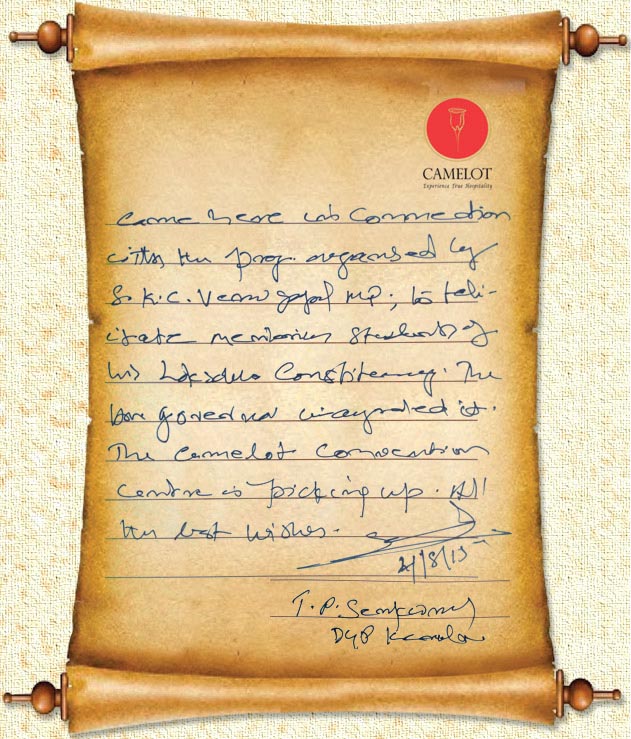 CAMELOT
Experience True Hospitality
Came here in Connection
with the prog. organised by
Sr K.C. Venugopal MP, to feli-
citate meritorious students of
his Loksabha Constituency. The
hon governor inaugurated it.
The Camelot Convention
Centre is picking up. All
the best wishes.
21/8/15
T.P. Senkumar
DGP Kerala